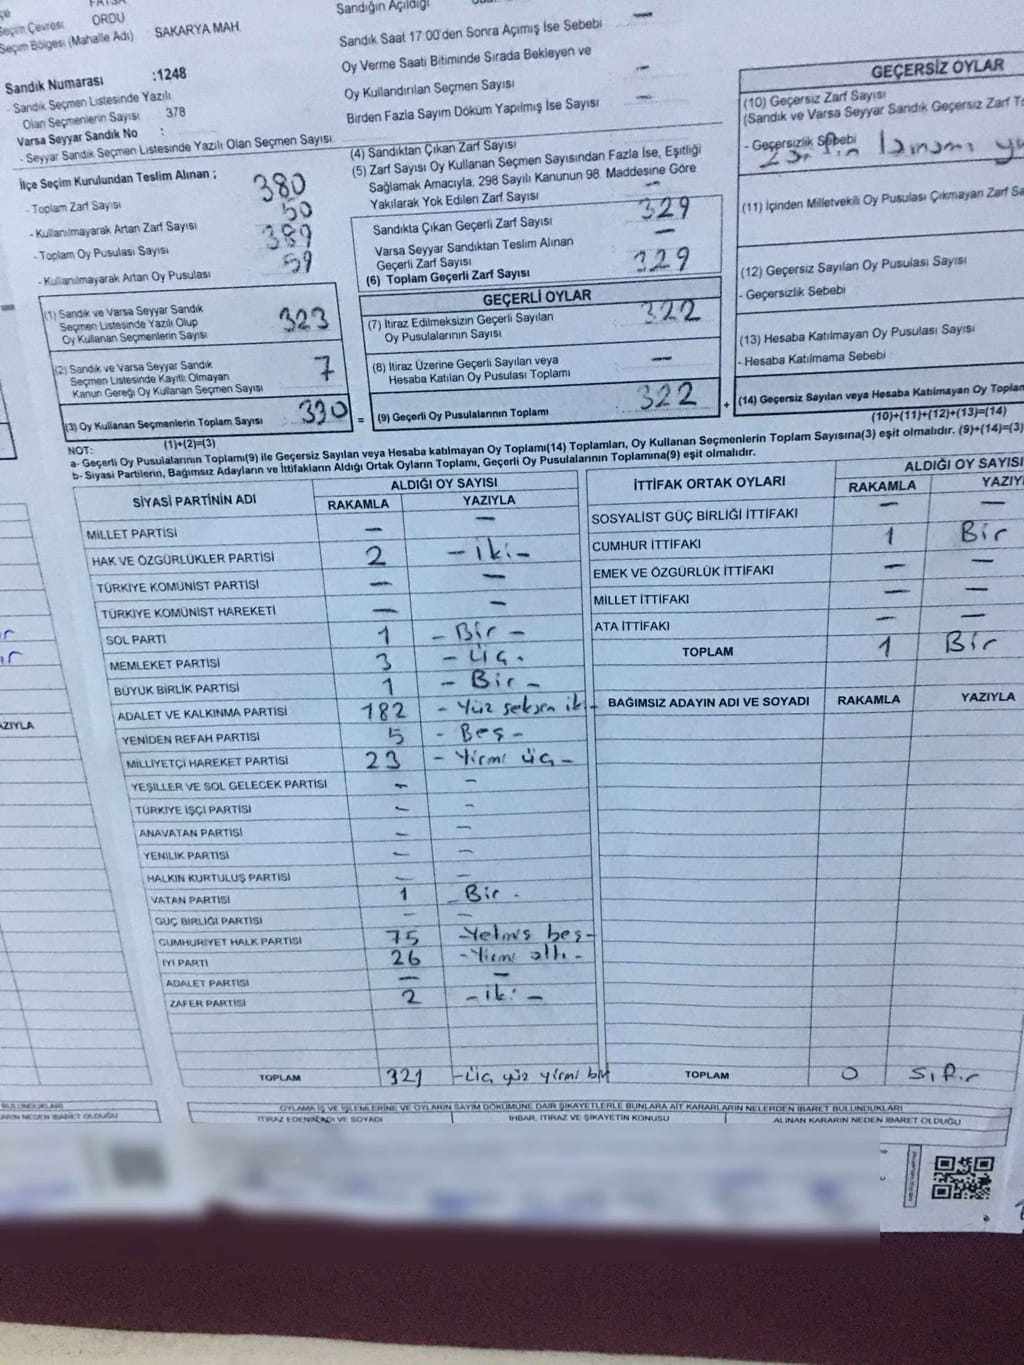 FATSA
Seçim Çevresi ORDU
Seçim Bölgesi (Mahalle Adı) SAKARYA MAH.
Sandık Numarası :1248
- Sandık Seçmen Listesinde Yazılı
Olan Seçmenlerin Sayısı 378
Varsa Seyyar Sandık No :
- Seyyar Sandık Seçmen Listesinde Yazılı Olan Seçmen Sayısı
İlçe Seçim Kurulundan Teslim Alınan ;
- Toplam Zarf Sayısı 380
- Kullanılmayarak Artan Zarf Sayısı 50
- Toplam Oy Pusulası Sayısı 389
- Kullanılmayarak Artan Oy Pusulası 59
(1) Sandık ve Varsa Seyyar Sandık
Seçmen Listesinde Yazılı Olup
Oy Kullanan Seçmenlerin Sayısı 323
(2) Sandık ve Varsa Seyyar Sandık
Seçmen Listesinde Kayıtlı Olmayan
Kanun Gereği Oy Kullanan Seçmen Sayısı 7
(3) Oy Kullanan Seçmenlerin Toplam Sayısı 330
(1)+(2)=(3)
Sandığın Açıldığı
Sandık Saat 17:00'den Sonra Açımış İse Sebebi —
Oy Verme Saati Bitiminde Sırada Bekleyen ve
Oy Kullandırılan Seçmen Sayısı —
Birden Fazla Sayım Döküm Yapılmış İse Sayısı —
(4) Sandıktan Çıkan Zarf Sayısı
(5) Zarf Sayısı Oy Kullanan Seçmen Sayısından Fazla İse, Eşitliği
Sağlamak Amacıyla, 298 Sayılı Kanunun 98. Maddesine Göre
Yakılarak Yok Edilen Zarf Sayısı —
Sandıkta Çıkan Geçerli Zarf Sayısı 329
Varsa Seyyar Sandıktan Teslim Alınan
Geçerli Zarf Sayısı —
(6) Toplam Geçerli Zarf Sayısı 329
GEÇERLİ OYLAR
(7) İtiraz Edilmeksizin Geçerli Sayılan
Oy Pusulalarının Sayısı 322
(8) İtiraz Üzerine Geçerli Sayılan veya
Hesaba Katılan Oy Pusulası Toplamı —
= (9) Geçerli Oy Pusulalarının Toplamı 322 +
GEÇERSİZ OYLAR
(10) Geçersiz Zarf Sayısı
(Sandık ve Varsa Seyyar Sandık Geçersiz Zarf
- Geçersizlik Sebebi
(11) İçinden Milletvekili Oy Pusulası Çıkmayan Zarf
(12) Geçersiz Sayılan Oy Pusulası Sayısı
- Geçersizlik Sebebi
(13) Hesaba Katılmayan Oy Pusulası Sayısı
- Hesaba Katılmama Sebebi
(14) Geçersiz Sayılan veya Hesaba Katılmayan Oy
(10)+(11)+(12)+(13)=(14)
NOT:
a- Geçerli Oy Pusulalarının Toplamı(9) ile Geçersiz Sayılan veya Hesaba katılmayan Oy Toplamı(14) Toplamları, Oy Kullanan Seçmenlerin Toplam Sayısına(3) eşit olmalıdır. (9)+(14)=(3)
b- Siyasi Partilerin, Bağımsız Adayların ve İttifakların Aldığı Ortak Oyların Toplamı, Geçerli Oy Pusulalarının Toplamına(9) eşit olmalıdır.
SİYASİ PARTİNİN ADI ALDIĞI OY SAYISI
RAKAMLA YAZIYLA
MİLLET PARTİSİ — —
HAK VE ÖZGÜRLÜKLER PARTİSİ 2 - iki -
TÜRKİYE KOMÜNİST PARTİSİ — —
TÜRKİYE KOMÜNİST HAREKETİ — —
SOL PARTİ 1 - Bir -
MEMLEKET PARTİSİ 3 - Üç.
BÜYÜK BİRLİK PARTİSİ 1 - Bir -
ADALET VE KALKINMA PARTİSİ 182 - Yüz seksen iki -
YENİDEN REFAH PARTİSİ 5 - Beş -
MİLLİYETÇİ HAREKET PARTİSİ 23 - Yirmi üç -
YEŞİLLER VE SOL GELECEK PARTİSİ — —
TÜRKİYE İŞÇİ PARTİSİ — —
ANAVATAN PARTİSİ — —
YENİLİK PARTİSİ — —
HALKIN KURTULUŞ PARTİSİ — —
VATAN PARTİSİ 1 - Bir -
GÜÇ BİRLİĞİ PARTİSİ — —
CUMHURİYET HALK PARTİSİ 75 - Yetmiş beş -
İYİ PARTİ 26 - Yirmi altı -
ADALET PARTİSİ — —
ZAFER PARTİSİ 2 - iki -
TOPLAM 321 - Üç yüz yirmi bir
İTTİFAK ORTAK OYLARI ALDIĞI OY SAYISI
RAKAMLA
SOSYALİST GÜÇ BİRLİĞİ İTTİFAKI — —
CUMHUR İTTİFAKI 1 Bir
EMEK VE ÖZGÜRLÜK İTTİFAKI — —
MİLLET İTTİFAKI — —
ATA İTTİFAKI — —
TOPLAM 1 Bir
BAĞIMSIZ ADAYIN ADI VE SOYADI RAKAMLA YAZIYLA
TOPLAM 0 Sıfır
YAZIYLA
OYLAMA İŞ VE İŞLEMLERİNE VE OYLARIN SAYIM DÖKÜMÜNE DAİR ŞİKAYETLERLE BUNLARA AİT KARARLARIN NELERDEN İBARET BULUNDUKLARI
İTİRAZ EDENİN ADI VE SOYADI İHBAR, İTİRAZ VE ŞİKAYETİN KONUSU ALINAN KARARIN NEDEN İBARET OLDUĞU
BULUNDUKLARI
NEDEN İBARET OLDUĞU